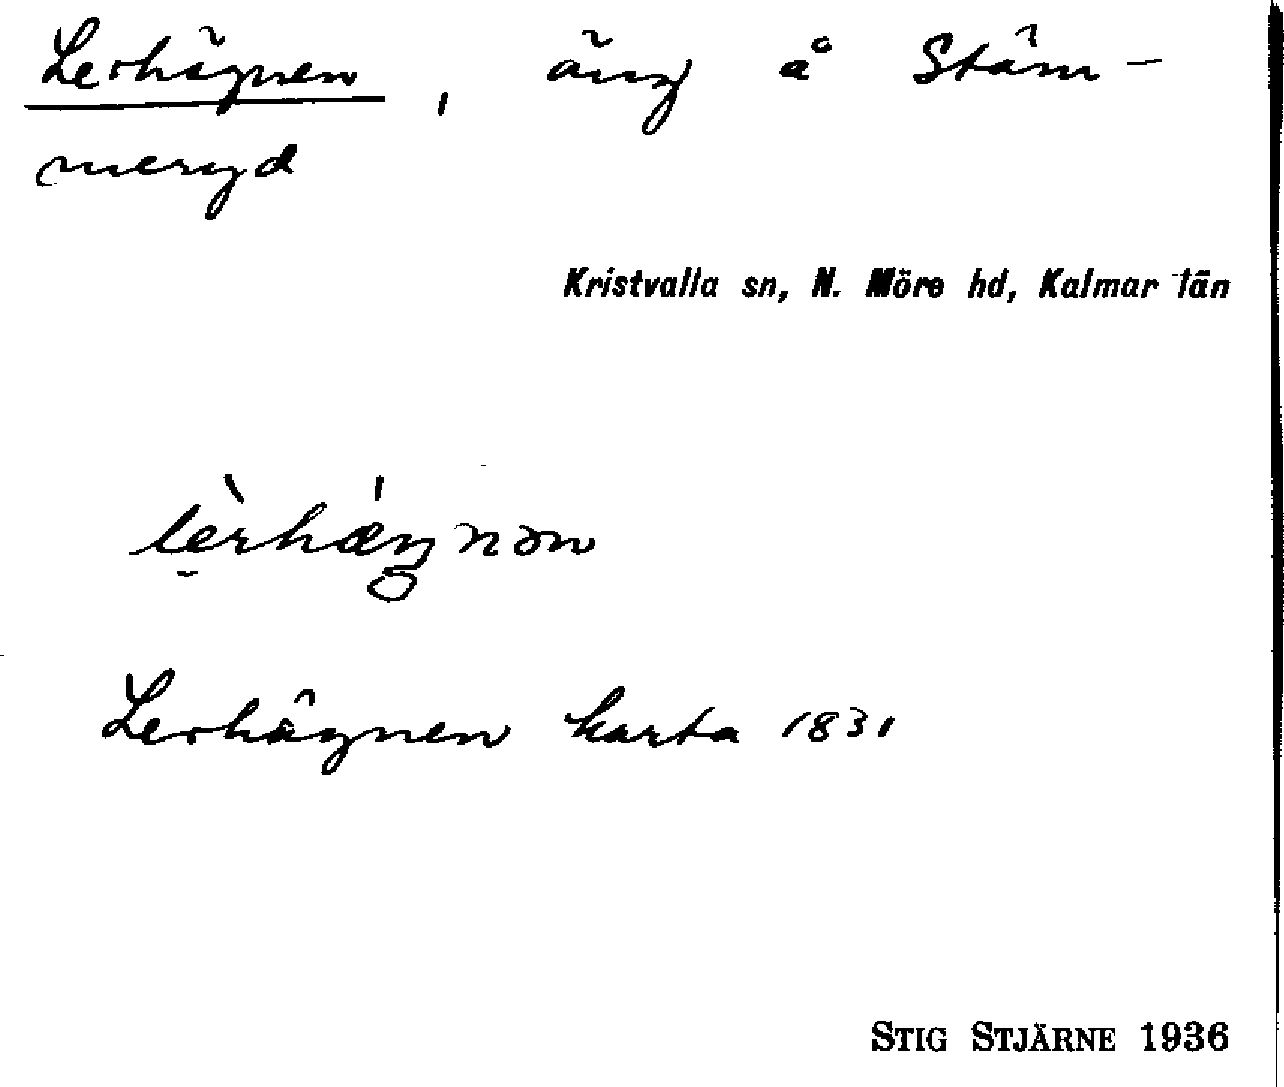 Lerhägnen, äng å Stäm-
meryd
Kristvalla sn, N. Möre hd, Kalmar län
lèrhǽŋnən
Lerhägnen karta 1831
STIG STJÄRNE 1936